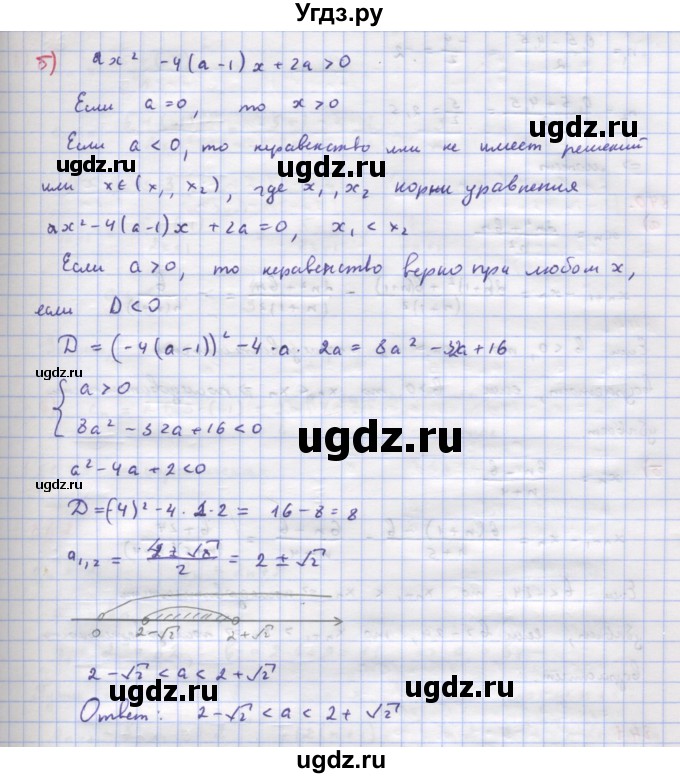 Угдз.ру
б) ax² - 4(a-1)x + 2a > 0
Если a = 0, то x > 0
Если a < 0, то неравенство или не имеет решений
или x ∈ (x₁, x₂), где x₁, x₂ корни уравнения
ax² - 4(a-1)x + 2a = 0, x₁ < x₂
Если a > 0, то неравенство верно при любом x,
если D < 0
D = (-4(a-1))² - 4·a·2a = 8a² - 32a + 16
{ a > 0
8a² - 32a + 16 < 0
a² - 4a + 2 < 0
D = (-4)² - 4·1·2 = 16 - 8 = 8
a₁,₂ = (4 ± √8)/2 = 2 ± √2
0 2-√2 2+√2
2 - √2 < a < 2 + √2
Ответ: 2 - √2 < a < 2 + √2
ugdz.ru
ugdz.ru
ugdz.ru
ugdz.ru
ugdz.ru
ugdz.ru
ugdz.ru
ugdz.ru
ugdz.ru
ugdz.ru
ugdz.ru